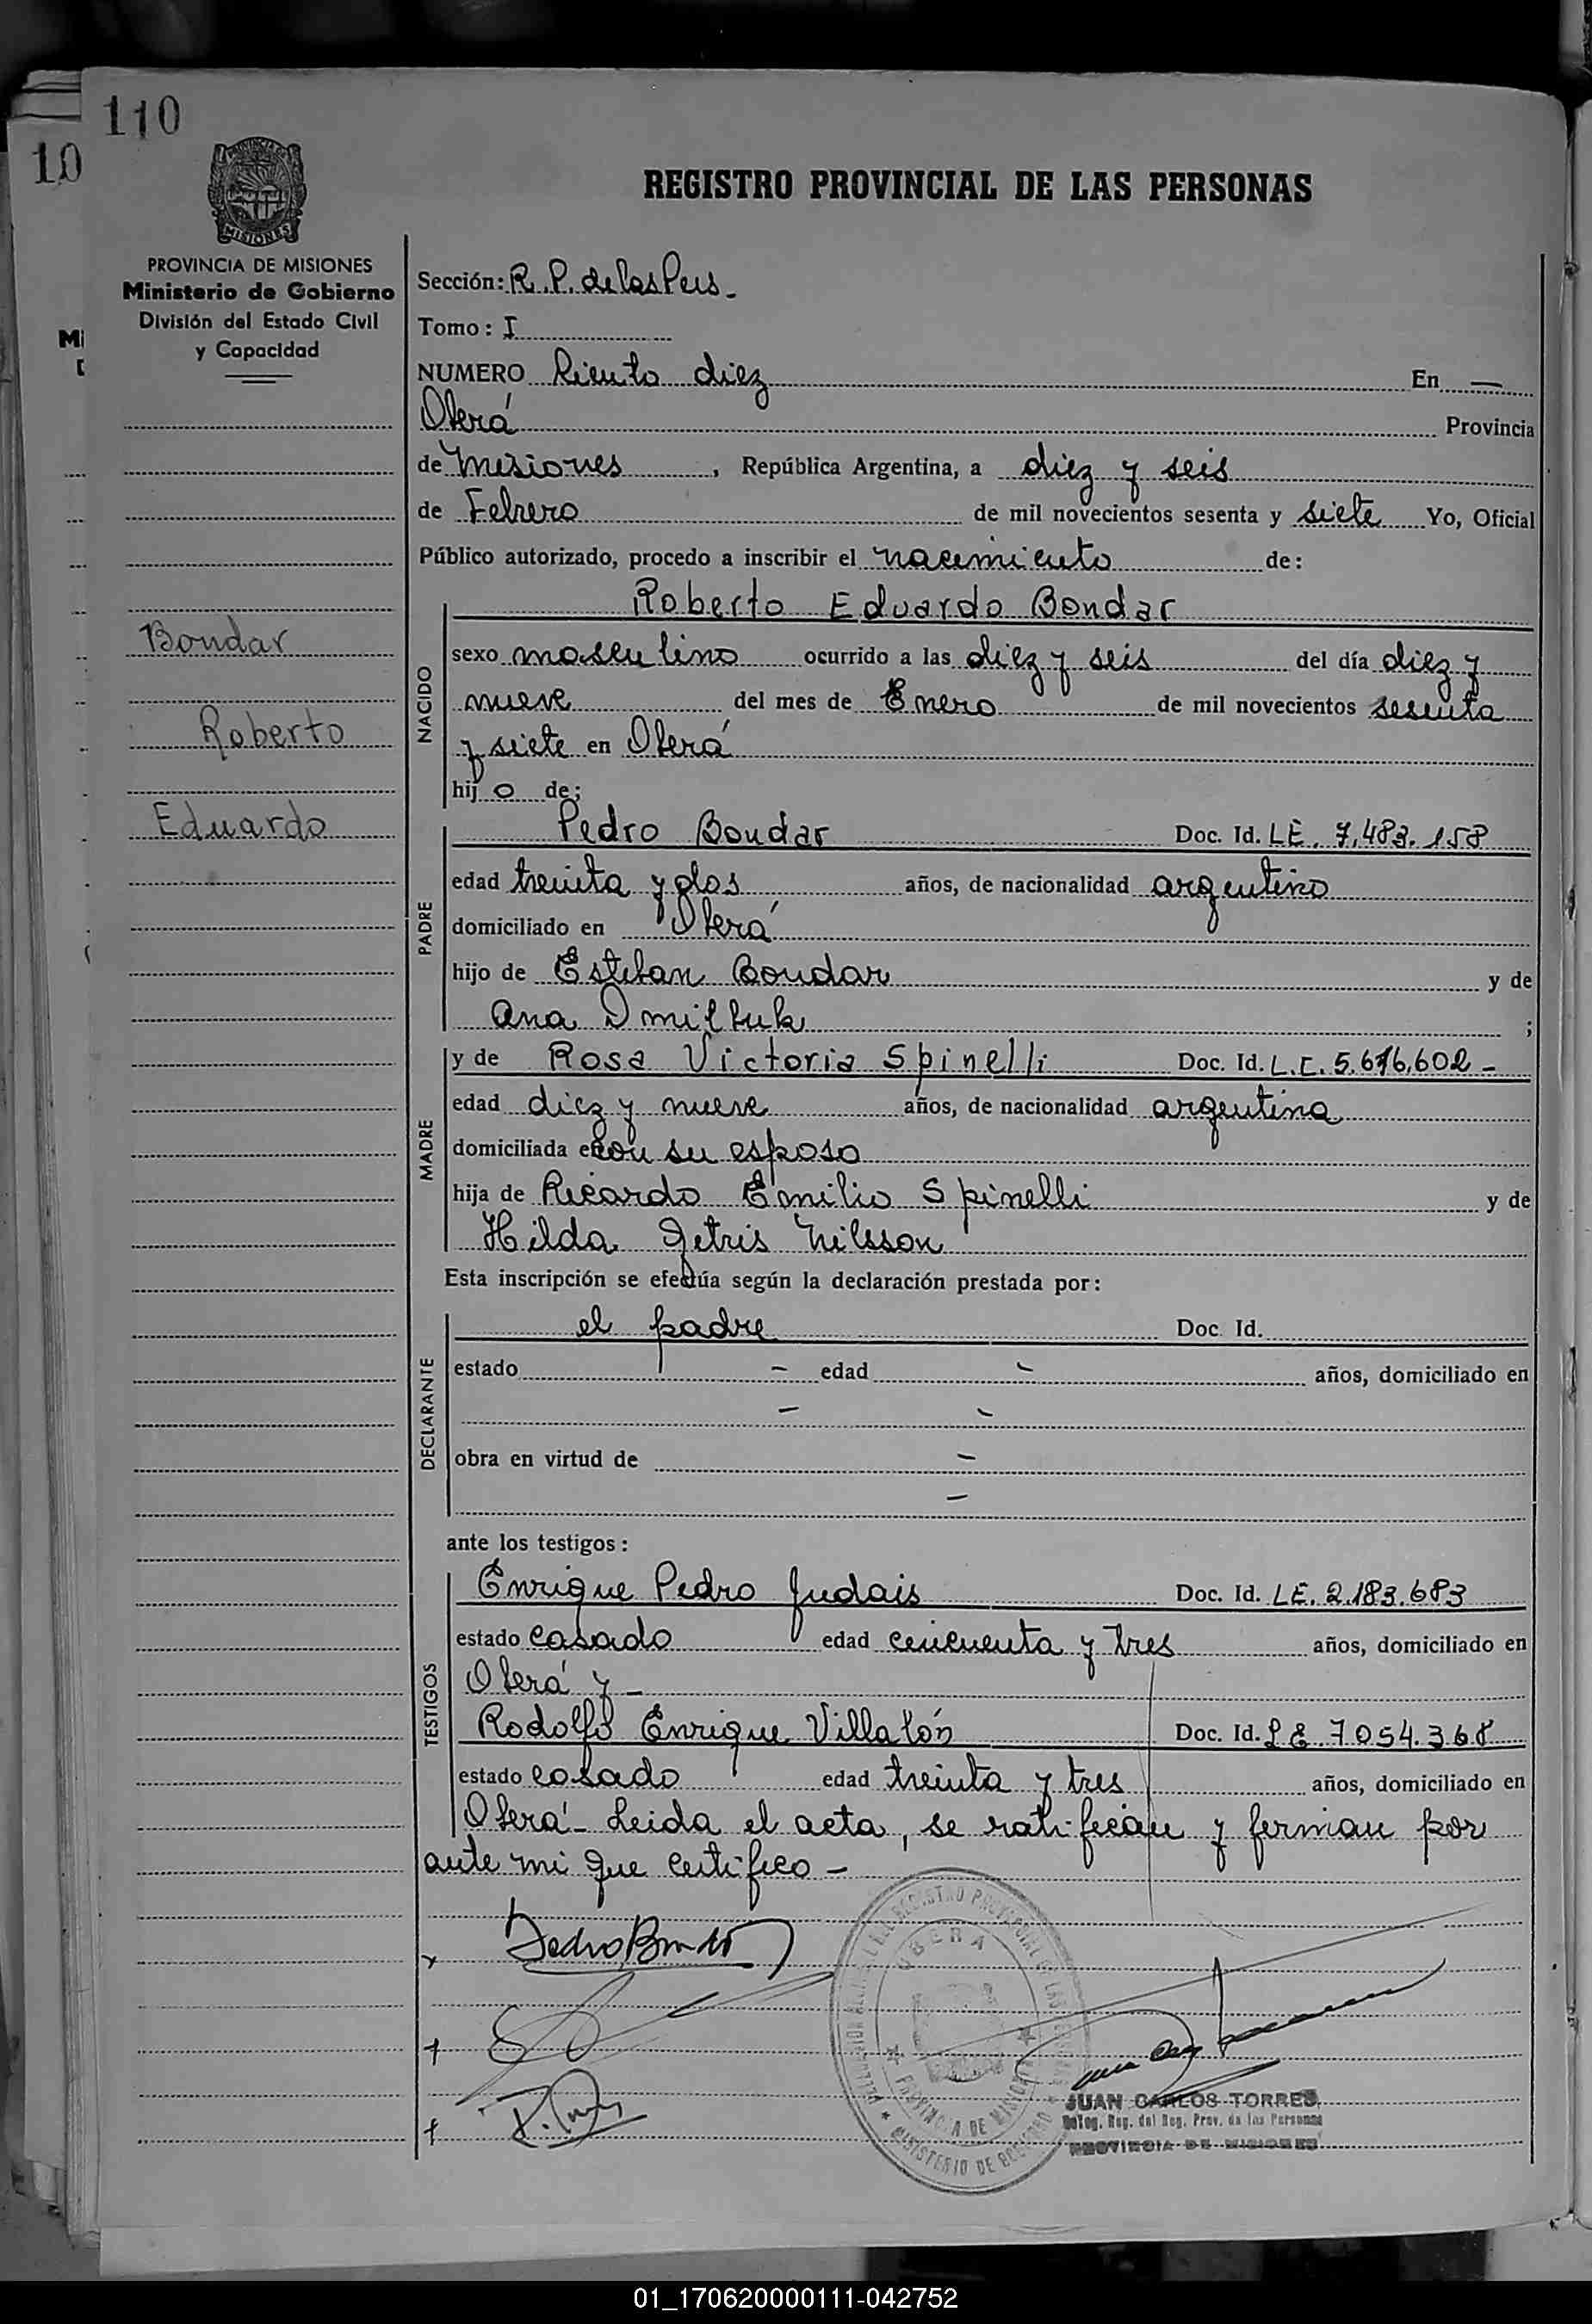 110
10
PROVINCIA DE
MISIONES
PROVINCIA DE MISIONES
Ministerio de Gobierno
División del Estado Civil
y Capacidad
Mi
Bondar
Roberto
Eduardo
REGISTRO PROVINCIAL DE LAS PERSONAS
Sección: R. P. de las Pers.
Tomo: I
NUMERO Ciento diez En —
Oberá Provincia
de Misiones, República Argentina, a diez y seis
de Febrero de mil novecientos sesenta y siete Yo, Oficial
Público autorizado, procedo a inscribir el nacimiento de:
NACIDO
Roberto Eduardo Bondar
sexo masculino ocurrido a las diez y seis del día diez y
nueve del mes de Enero de mil novecientos sesenta
y siete en Oberá
hijo de;
PADRE
Pedro Bondar Doc. Id. LE. 7.483.158
edad treinta y dos años, de nacionalidad argentino
domiciliado en Oberá
hijo de Esteban Bondar y de
Ana Dmiltuk ;
MADRE
y de Rosa Victoria Spinelli Doc. Id. L.C. 5.676.602 -
edad diez y nueve años, de nacionalidad argentina
domiciliada con su esposo
hija de Ricardo Emilio Spinelli y de
Hilda Getris Nilsson
Esta inscripción se efectúa según la declaración prestada por:
DECLARANTE
el padre Doc. Id.
estado - edad - años, domiciliado en
- -
obra en virtud de -
-
ante los testigos:
TESTIGOS
Enrique Pedro Judais Doc. Id. LE. 2.183.683
estado casado edad cincuenta y tres años, domiciliado en
Oberá y -
Rodolfo Enrique Villalón Doc. Id. LE 7054.368
estado casado edad treinta y tres años, domiciliado en
Oberá - Leida el acta, se ratifican y firman por
ante mi que certifico -
Pedro Bondar
OBERA
PROVINCIA DE MISIONES
MINISTERIO DE GOBIERNO
JUAN CARLOS TORRES
Deleg. Reg. del Reg. Prov. de las Personas
PROVINCIA DE MISIONES
01_170620000111-042752